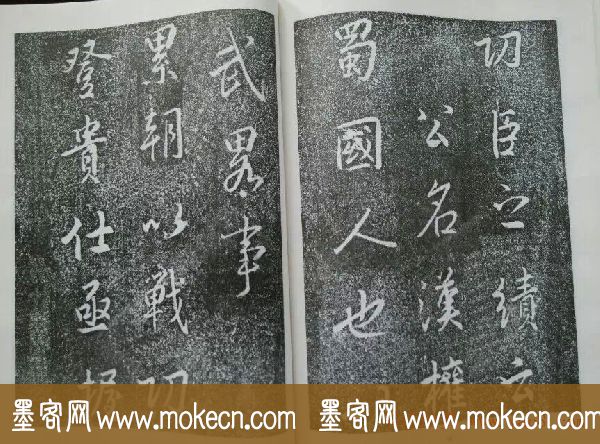 功臣之績
公名漢
蜀國人也
武畧事
累朝以戰功
登貴仕亟
墨客网 www.mokecn.com 墨客网 www.mokecn.com